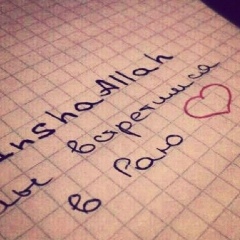 inshaAllah
мы встретимся
в Раю